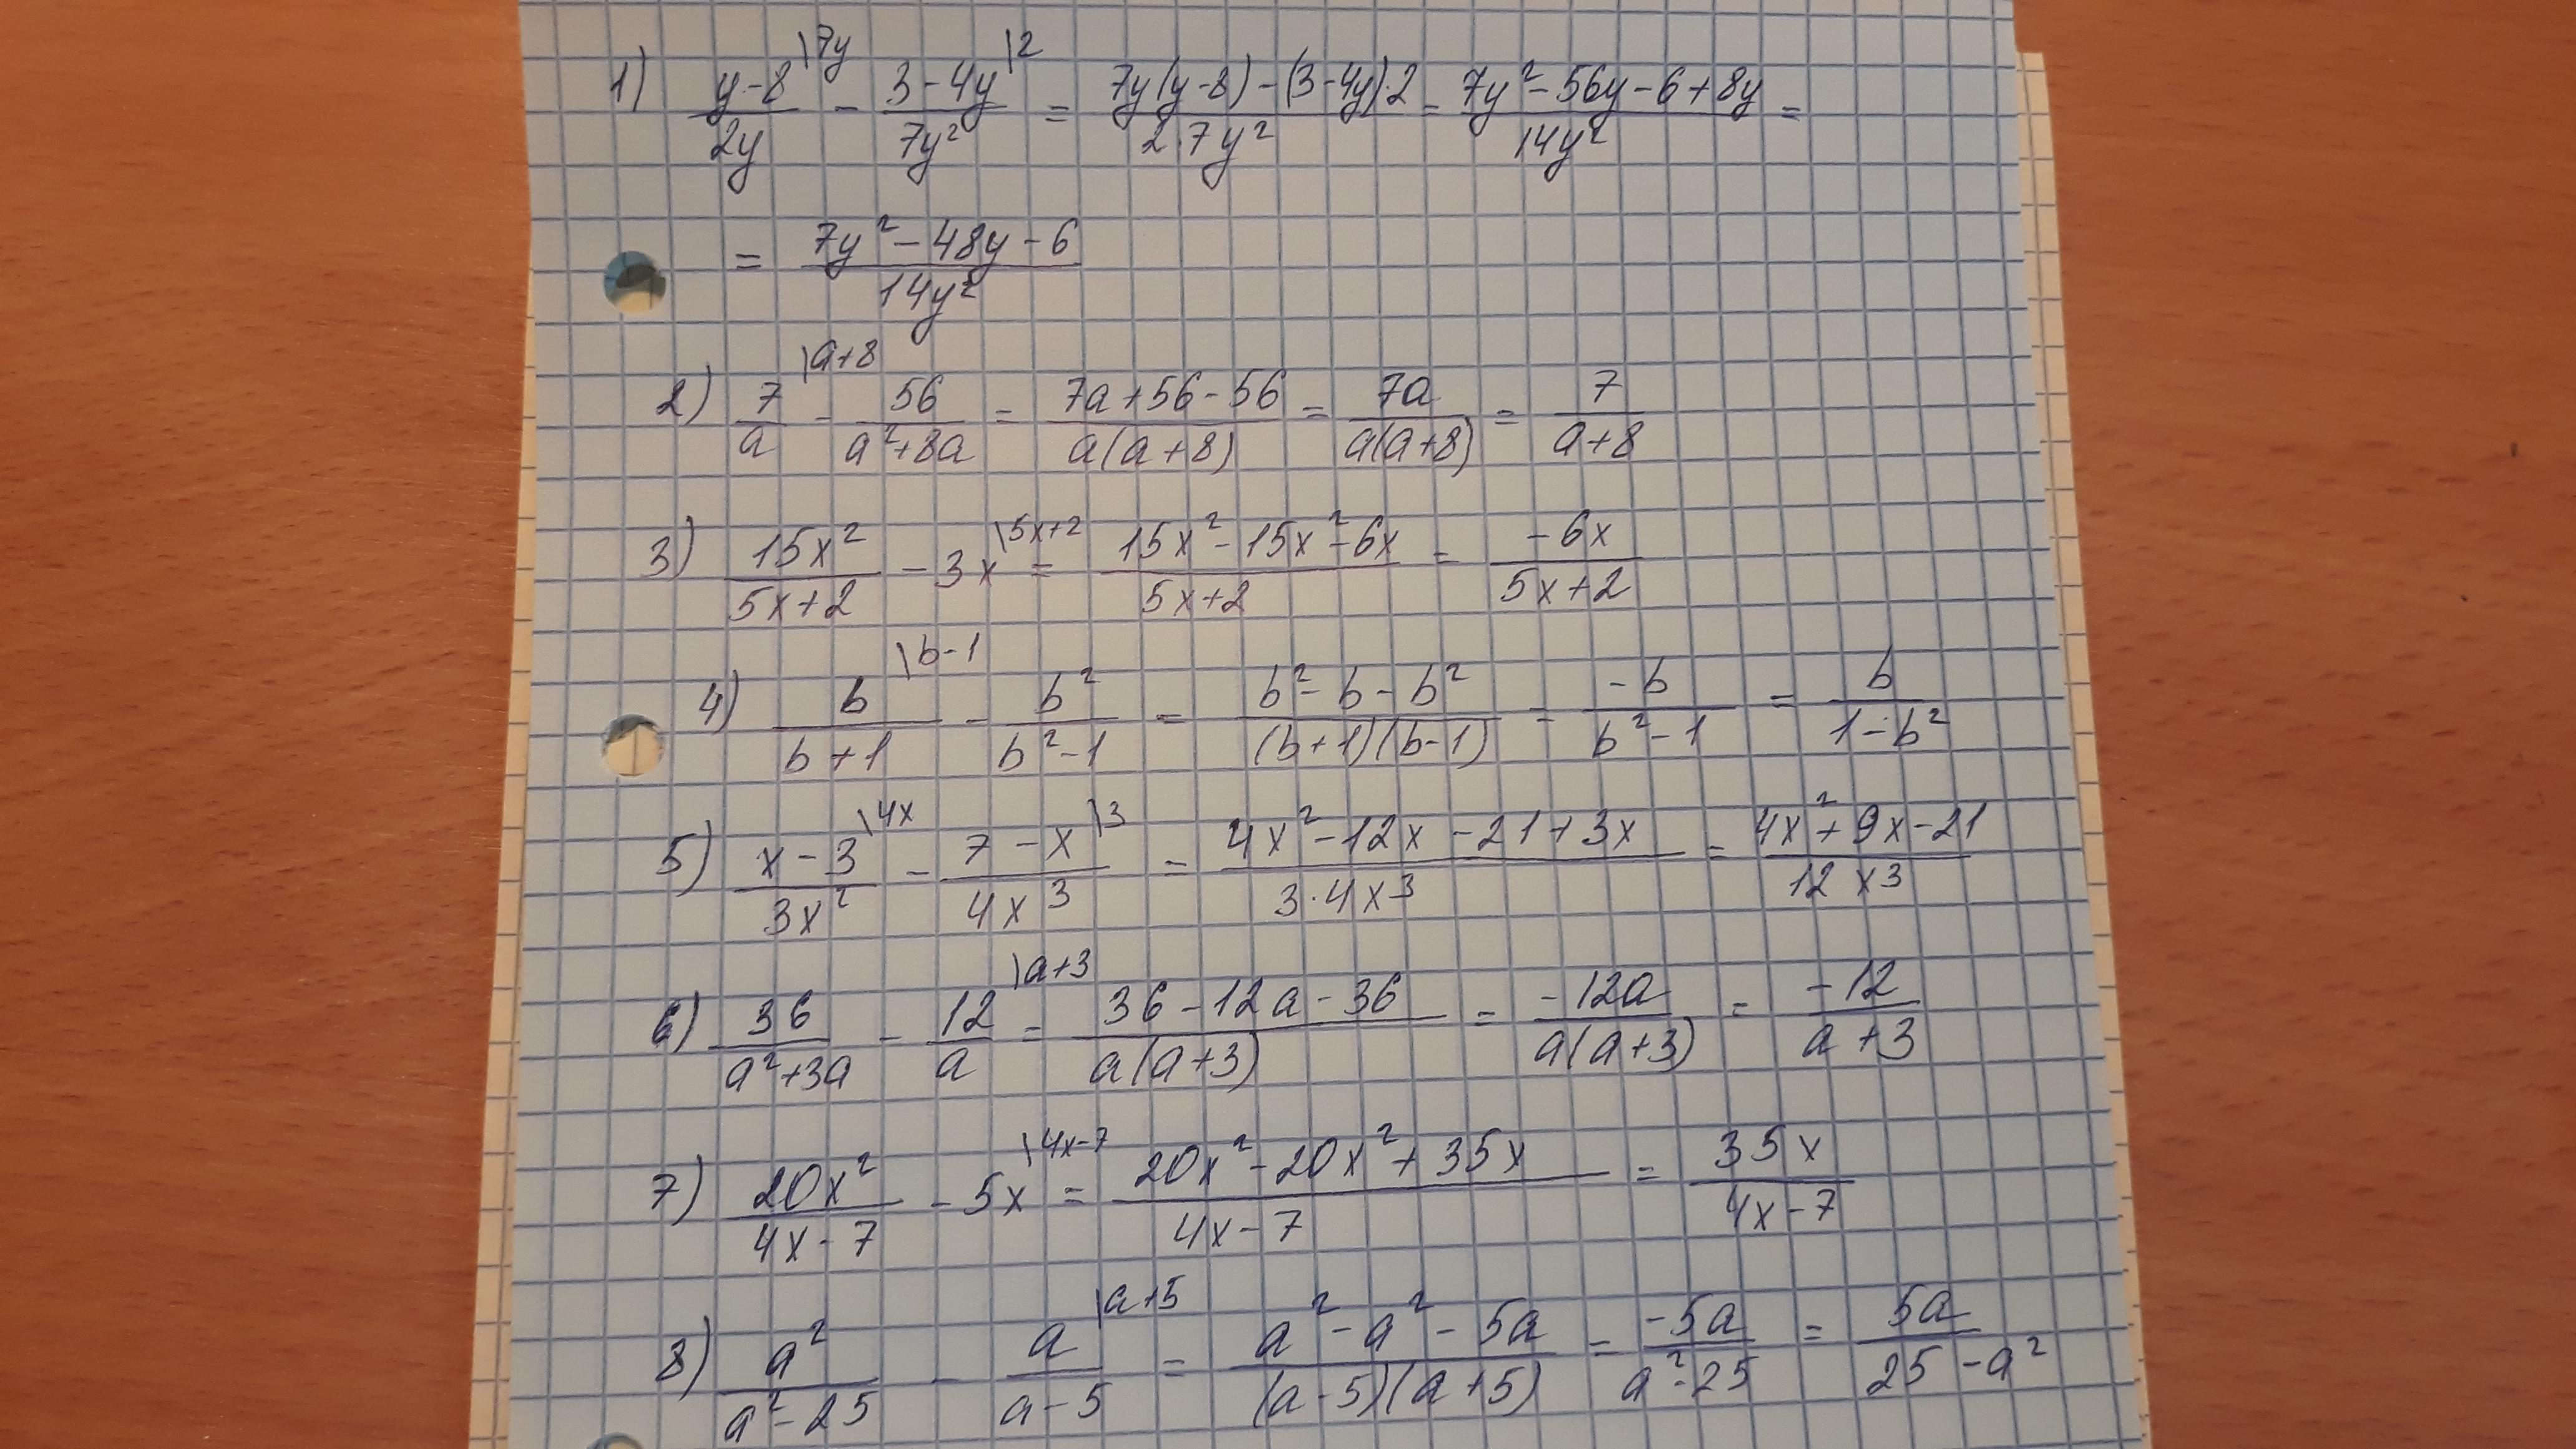 1) (y-8)/(2y) \7y - (3-4y)/(7y²) \2 = (7y(y-8)-(3-4y)·2)/(2·7y²) = (7y²-56y-6+8y)/(14y²) =
= (7y²-48y-6)/(14y²)
2) 7/a \a+8 - 56/(a²+8a) = (7a+56-56)/(a(a+8)) = 7a/(a(a+8)) = 7/(a+8)
3) 15x²/(5x+2) - 3x \5x+2 = (15x²-15x²-6x)/(5x+2) = -6x/(5x+2)
4) b/(b+1) \b-1 - b²/(b²-1) = (b²-b-b²)/((b+1)(b-1)) = -b/(b²-1) = b/(1-b²)
5) (x-3)/(3x²) \4x - (7-x)/(4x³) \3 = (4x²-12x-21+3x)/(3·4x³) = (4x²+9x-21)/(12x³)
6) 36/(a²+3a) - 12/a \a+3 = (36-12a-36)/(a(a+3)) = -12a/(a(a+3)) = -12/(a+3)
7) 20x²/(4x-7) - 5x \4x-7 = (20x²-20x²+35x)/(4x-7) = 35x/(4x-7)
8) a²/(a²-25) - a/(a-5) \a+5 = (a²-a²-5a)/((a-5)(a+5)) = -5a/(a²-25) = 5a/(25-a²)